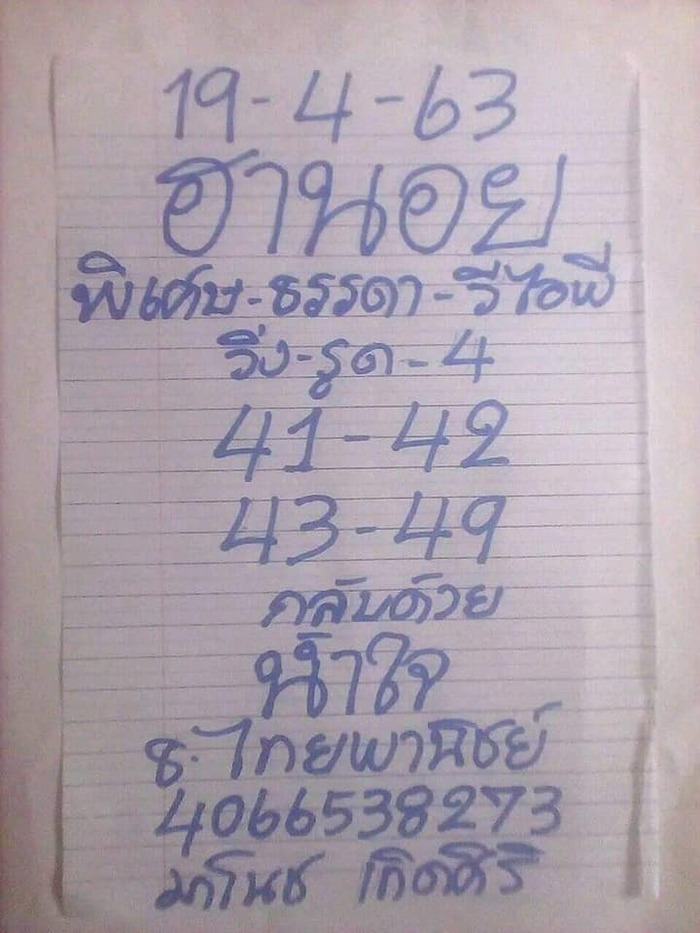 19-4-63
ฮานอย
พิเศษ-ธรรดา-วีไอพี
วิ่ง-รูด-4
41-42
43-49
กลับด้วย
น้ำใจ
ธ.ไทยพานิชย์
4066538273
มาโนช เกิดศิริ